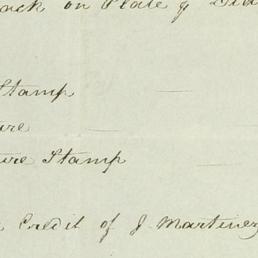 ack on Plate &
Stamp
ure
ure Stamp
Credit of J. Martinez